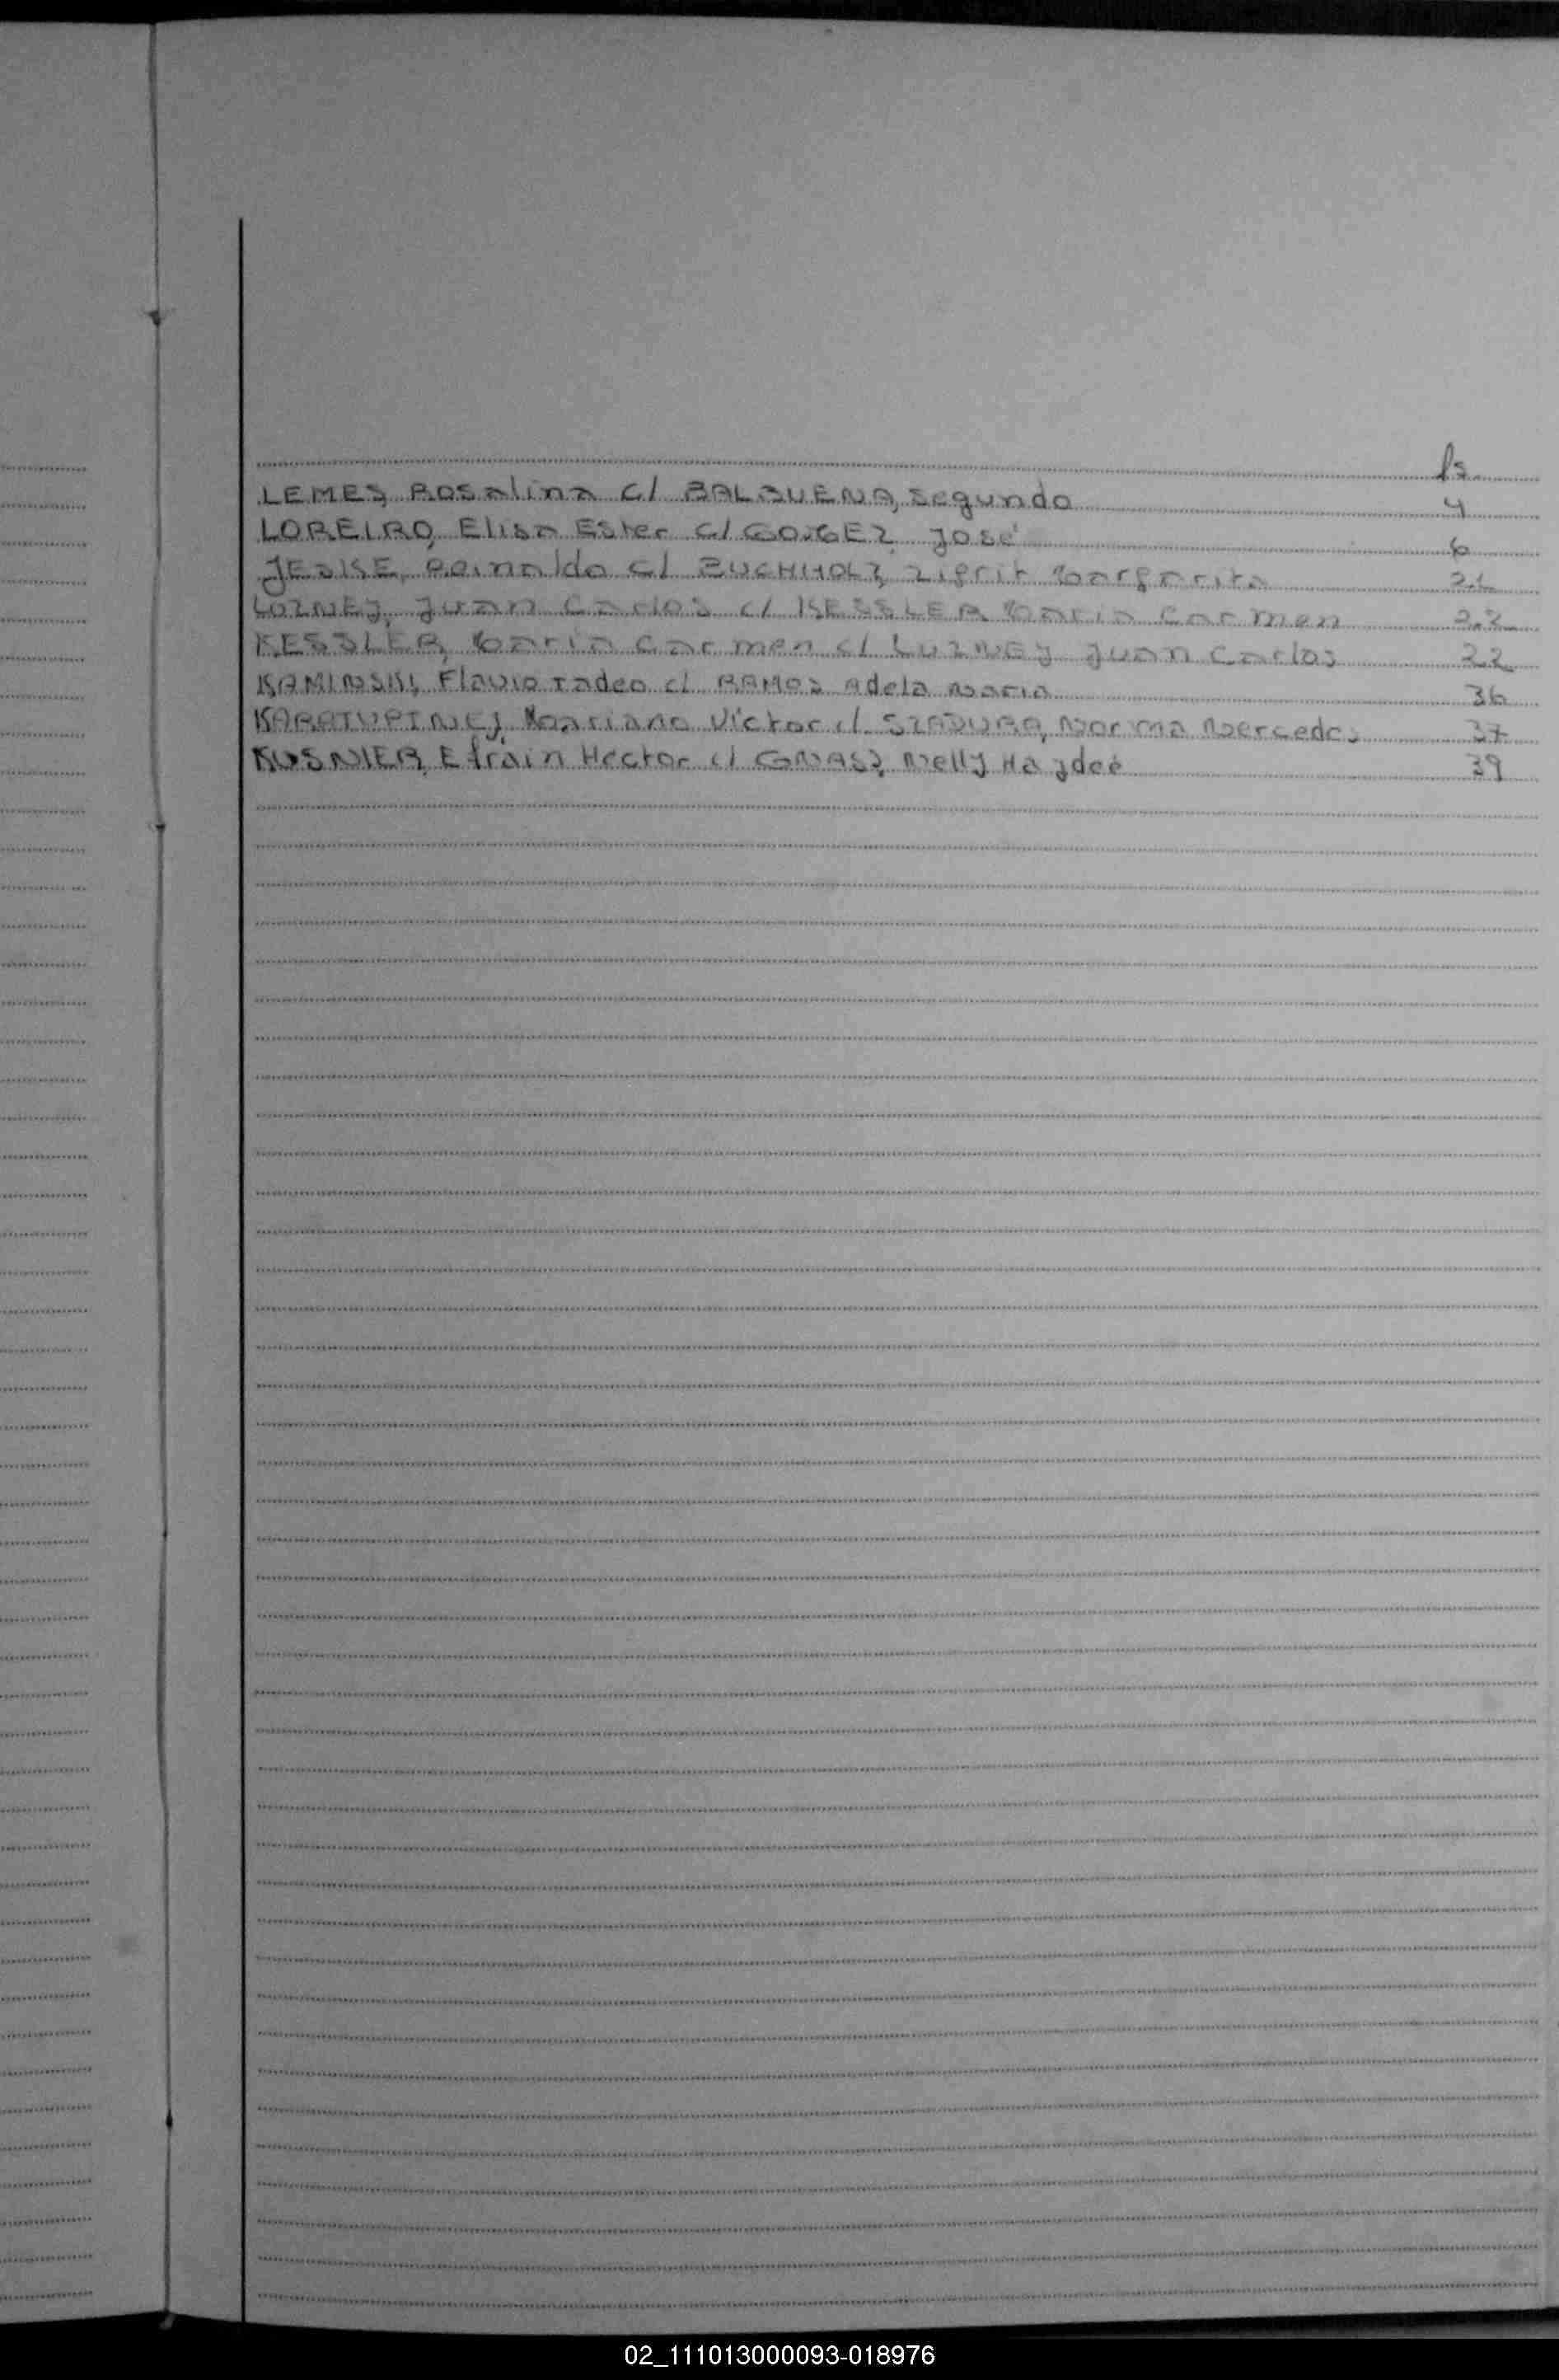 fs.
LEMES, Rosalina c/ BALBUENA, Segundo 4
LOREIRO, Elisa Ester c/ José 6
JESKE, Reinaldo c/ BUCHHOLZ, Zigrit Margarita 21
LUZNEJ, Juan Carlos c/ KESSLER Maria Carmen 22
KESSLER, Maria Carmen c/ LUZNEJ Juan Carlos 22
KAMINSKI, Flavio Tadeo c/ RAMOS Adela Maria 36
Mariano Victor c/ SZADURA, Norma Mercedes 37
KUSNIER, Efrain Hector c/ Nelly Haydeé 39
02_111013000093-018976